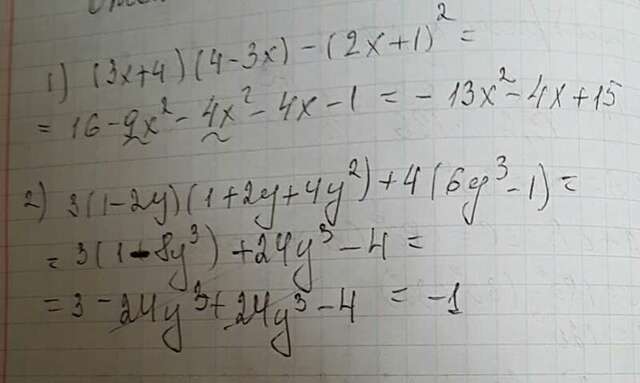 1) (3x+4)(4-3x)-(2x+1)²=
= 16-9x²-4x²-4x-1 = -13x²-4x+15
2) 3(1-2y)(1+2y+4y²)+4(6y³-1)=
= 3(1-8y³)+24y³-4=
= 3-24y³+24y³-4 = -1